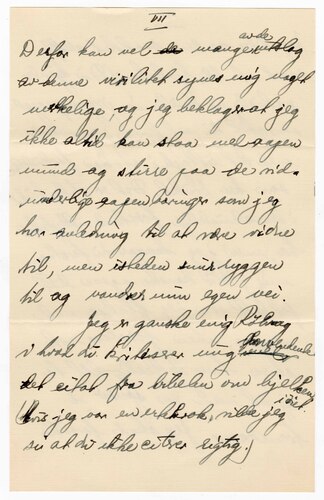 VII
Derfor kan vel de mange utslag
av de
av denne virilitet synes mig noget
merkelige, og jeg beklager at jeg
ikke altid kan staa med aapen
mund og stirre paa de vid-
underlige aapenbaringer som jeg
har anledning til at være vidne
til, men isteden snur ryggen
til og vandrer min egen vei.
Jeg er ganske enig
i hvad du skriver mig
det citat fra bibelen om bjelken
i öiet.
(Hvis jeg var en, vilde jeg
si at du ikke citerer rigtig.)